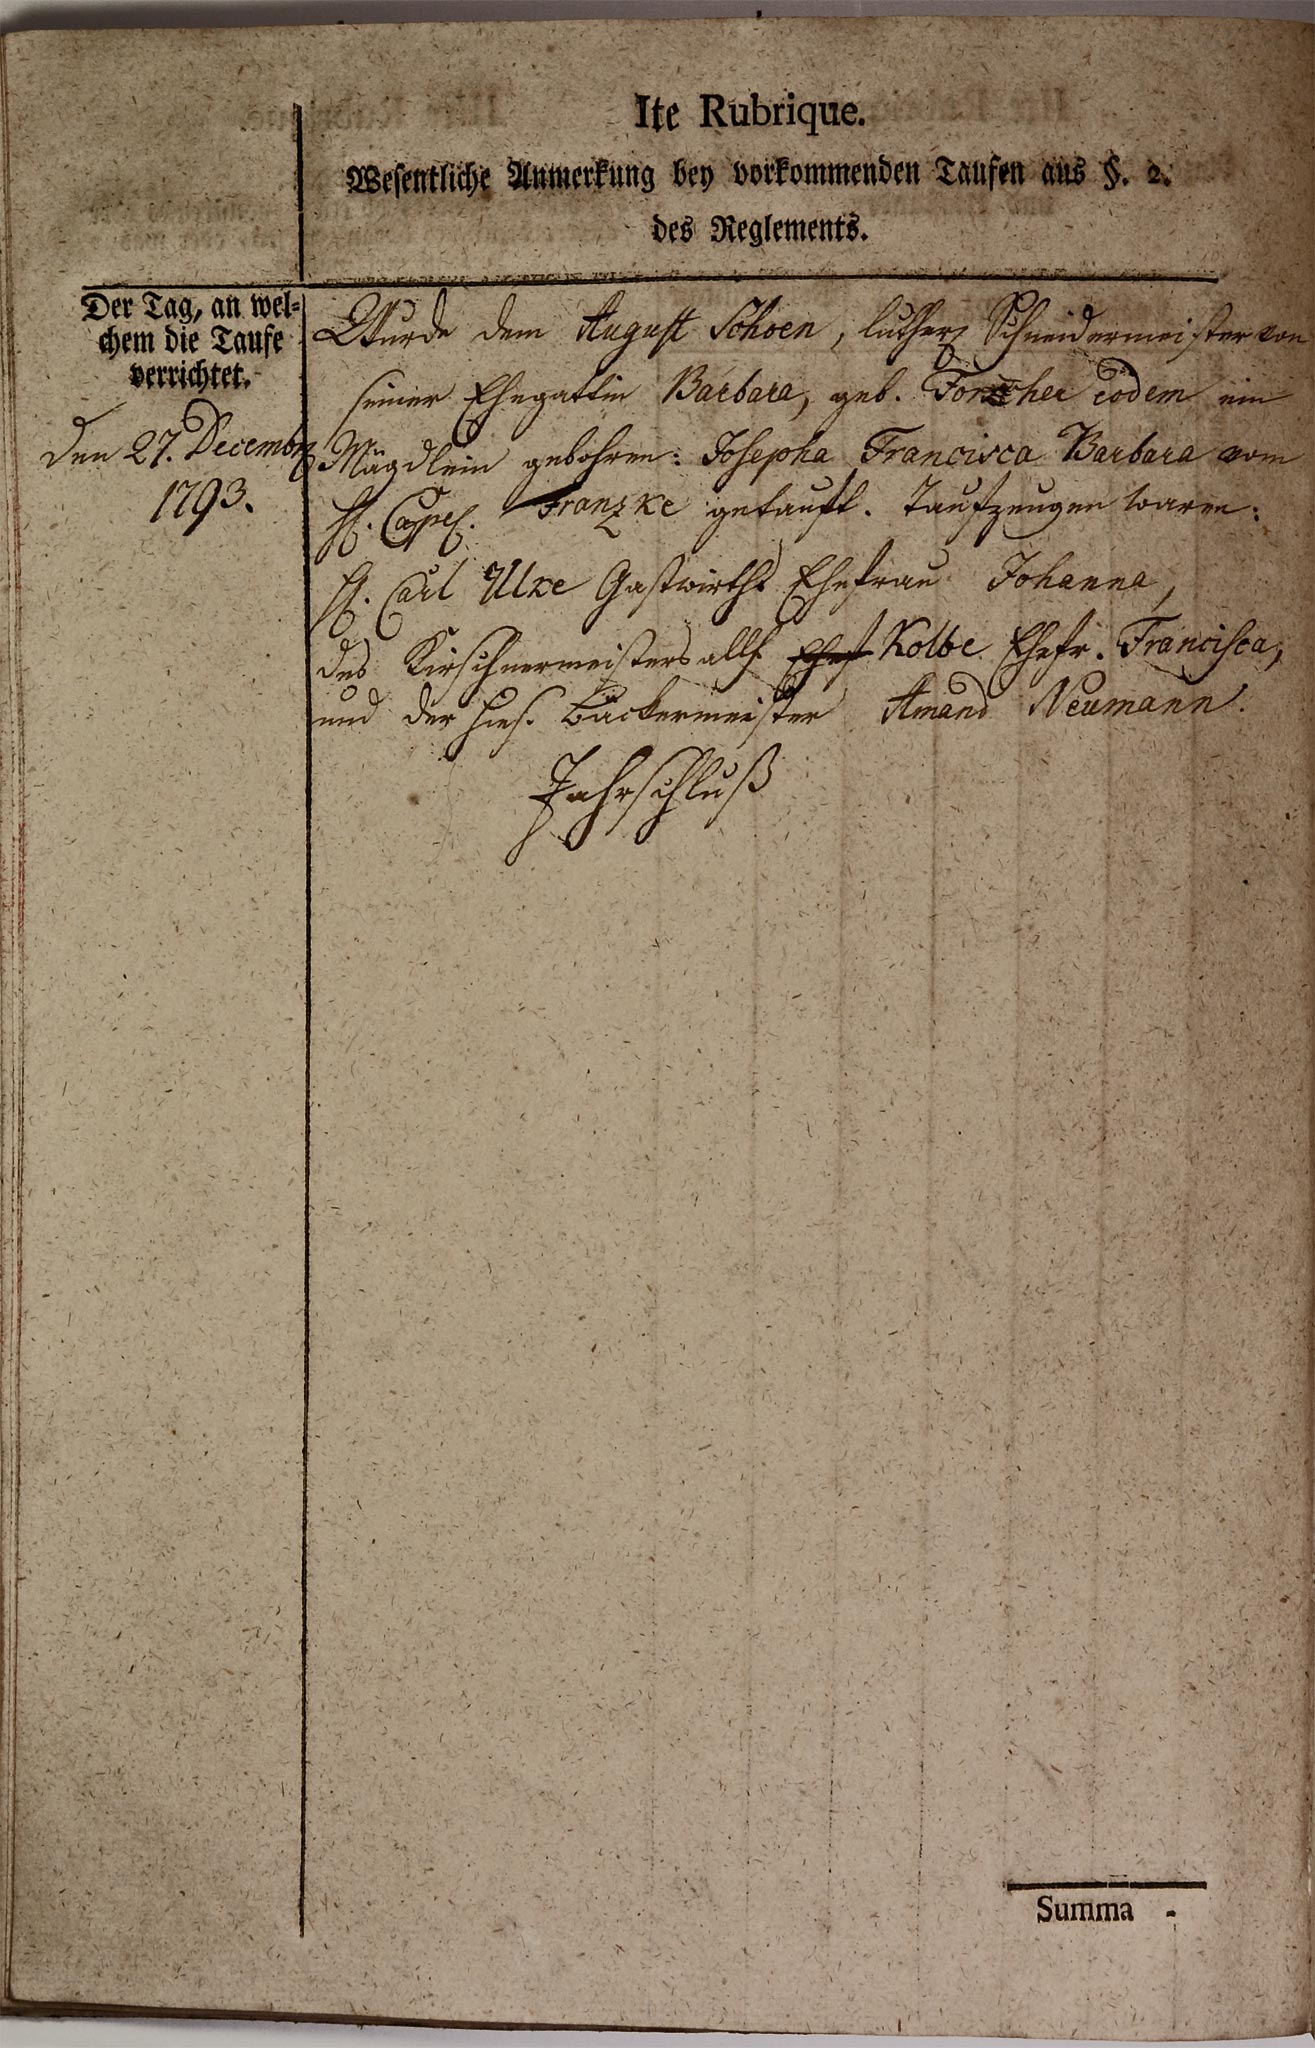 Ite Rubrique.
Wesentliche Anmerkung bey vorkommenden Taufen aus §. 2.
des Reglements.
Der Tag, an wel-
chem die Taufe
verrichtet.
Den 27. Decembr
1793.
Wurde dem August Schoen, luther. Schneidermeister von
seiner Ehegattin Barbara, geb. eodem ein
Mägdlein gebohren: Josepha Francisca Barbara vom
H. Capel. Franzke getauft. Taufzeugen waren:
H. Carl Ulke Gastwirths Ehefrau Johanna,
des Kirschnermeisters allh. Kolbe Ehefr. Francisca,
und der hies. Bäckermeister Amand Neumann.
Jahrschluß
Summa -